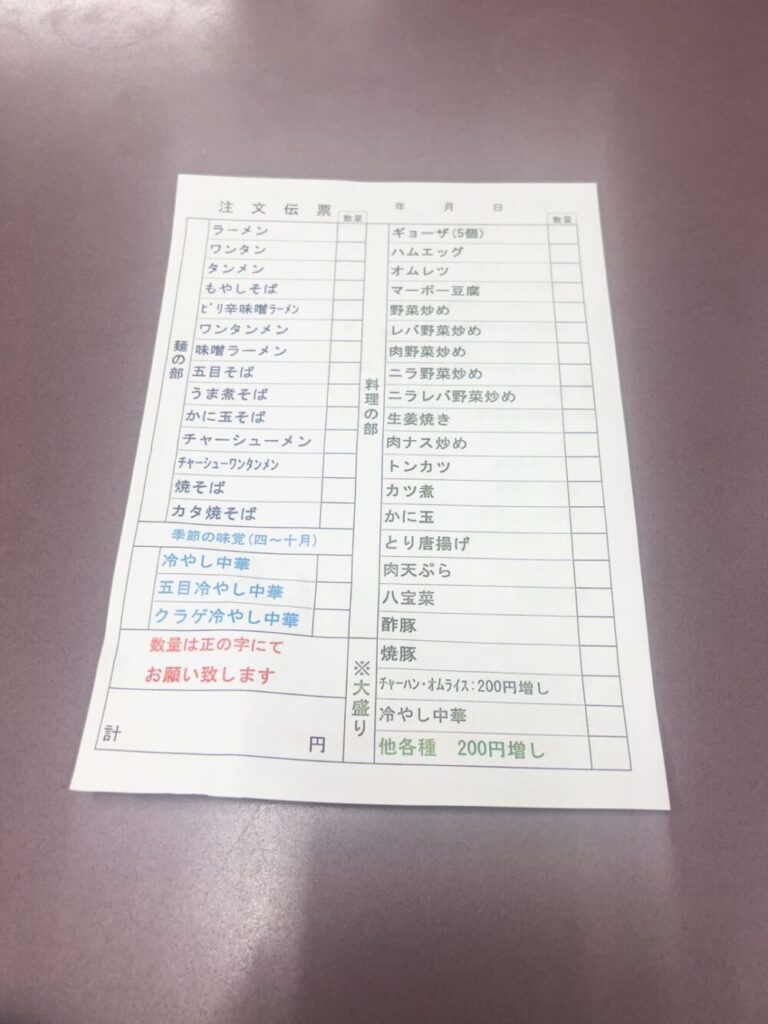 注文伝票 年 月 日
数量
麺の部
ラーメン
ワンタン
タンメン
もやしそば
ピリ辛味噌ラーメン
ワンタンメン
味噌ラーメン
五目そば
うま煮そば
かに玉そば
チャーシューメン
チャーシューワンタンメン
焼そば
カタ焼そば
季節の味覚(四～十月)
冷やし中華
五目冷やし中華
クラゲ冷やし中華
数量は正の字にて
お願い致します
計 円
数量
料理の部
ギョーザ(5個)
ハムエッグ
オムレツ
マーボー豆腐
野菜炒め
レバ野菜炒め
肉野菜炒め
ニラ野菜炒め
ニラレバ野菜炒め
生姜焼き
肉ナス炒め
トンカツ
カツ煮
かに玉
とり唐揚げ
肉天ぷら
八宝菜
酢豚
焼豚
※大盛り
チャーハン・オムライス:200円増し
冷やし中華
他各種 200円増し